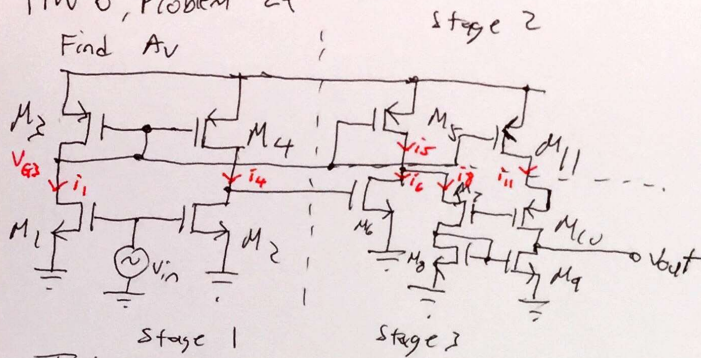 HW 6, Problem 2
Find Av
Stage 2
M3
M4
M5
M11
VG3
i1
i4
i5
i6
i8
i11
M7
M10
M1
M2
M6
M8
M9
Vin
Vout
Stage 1
Stage 3